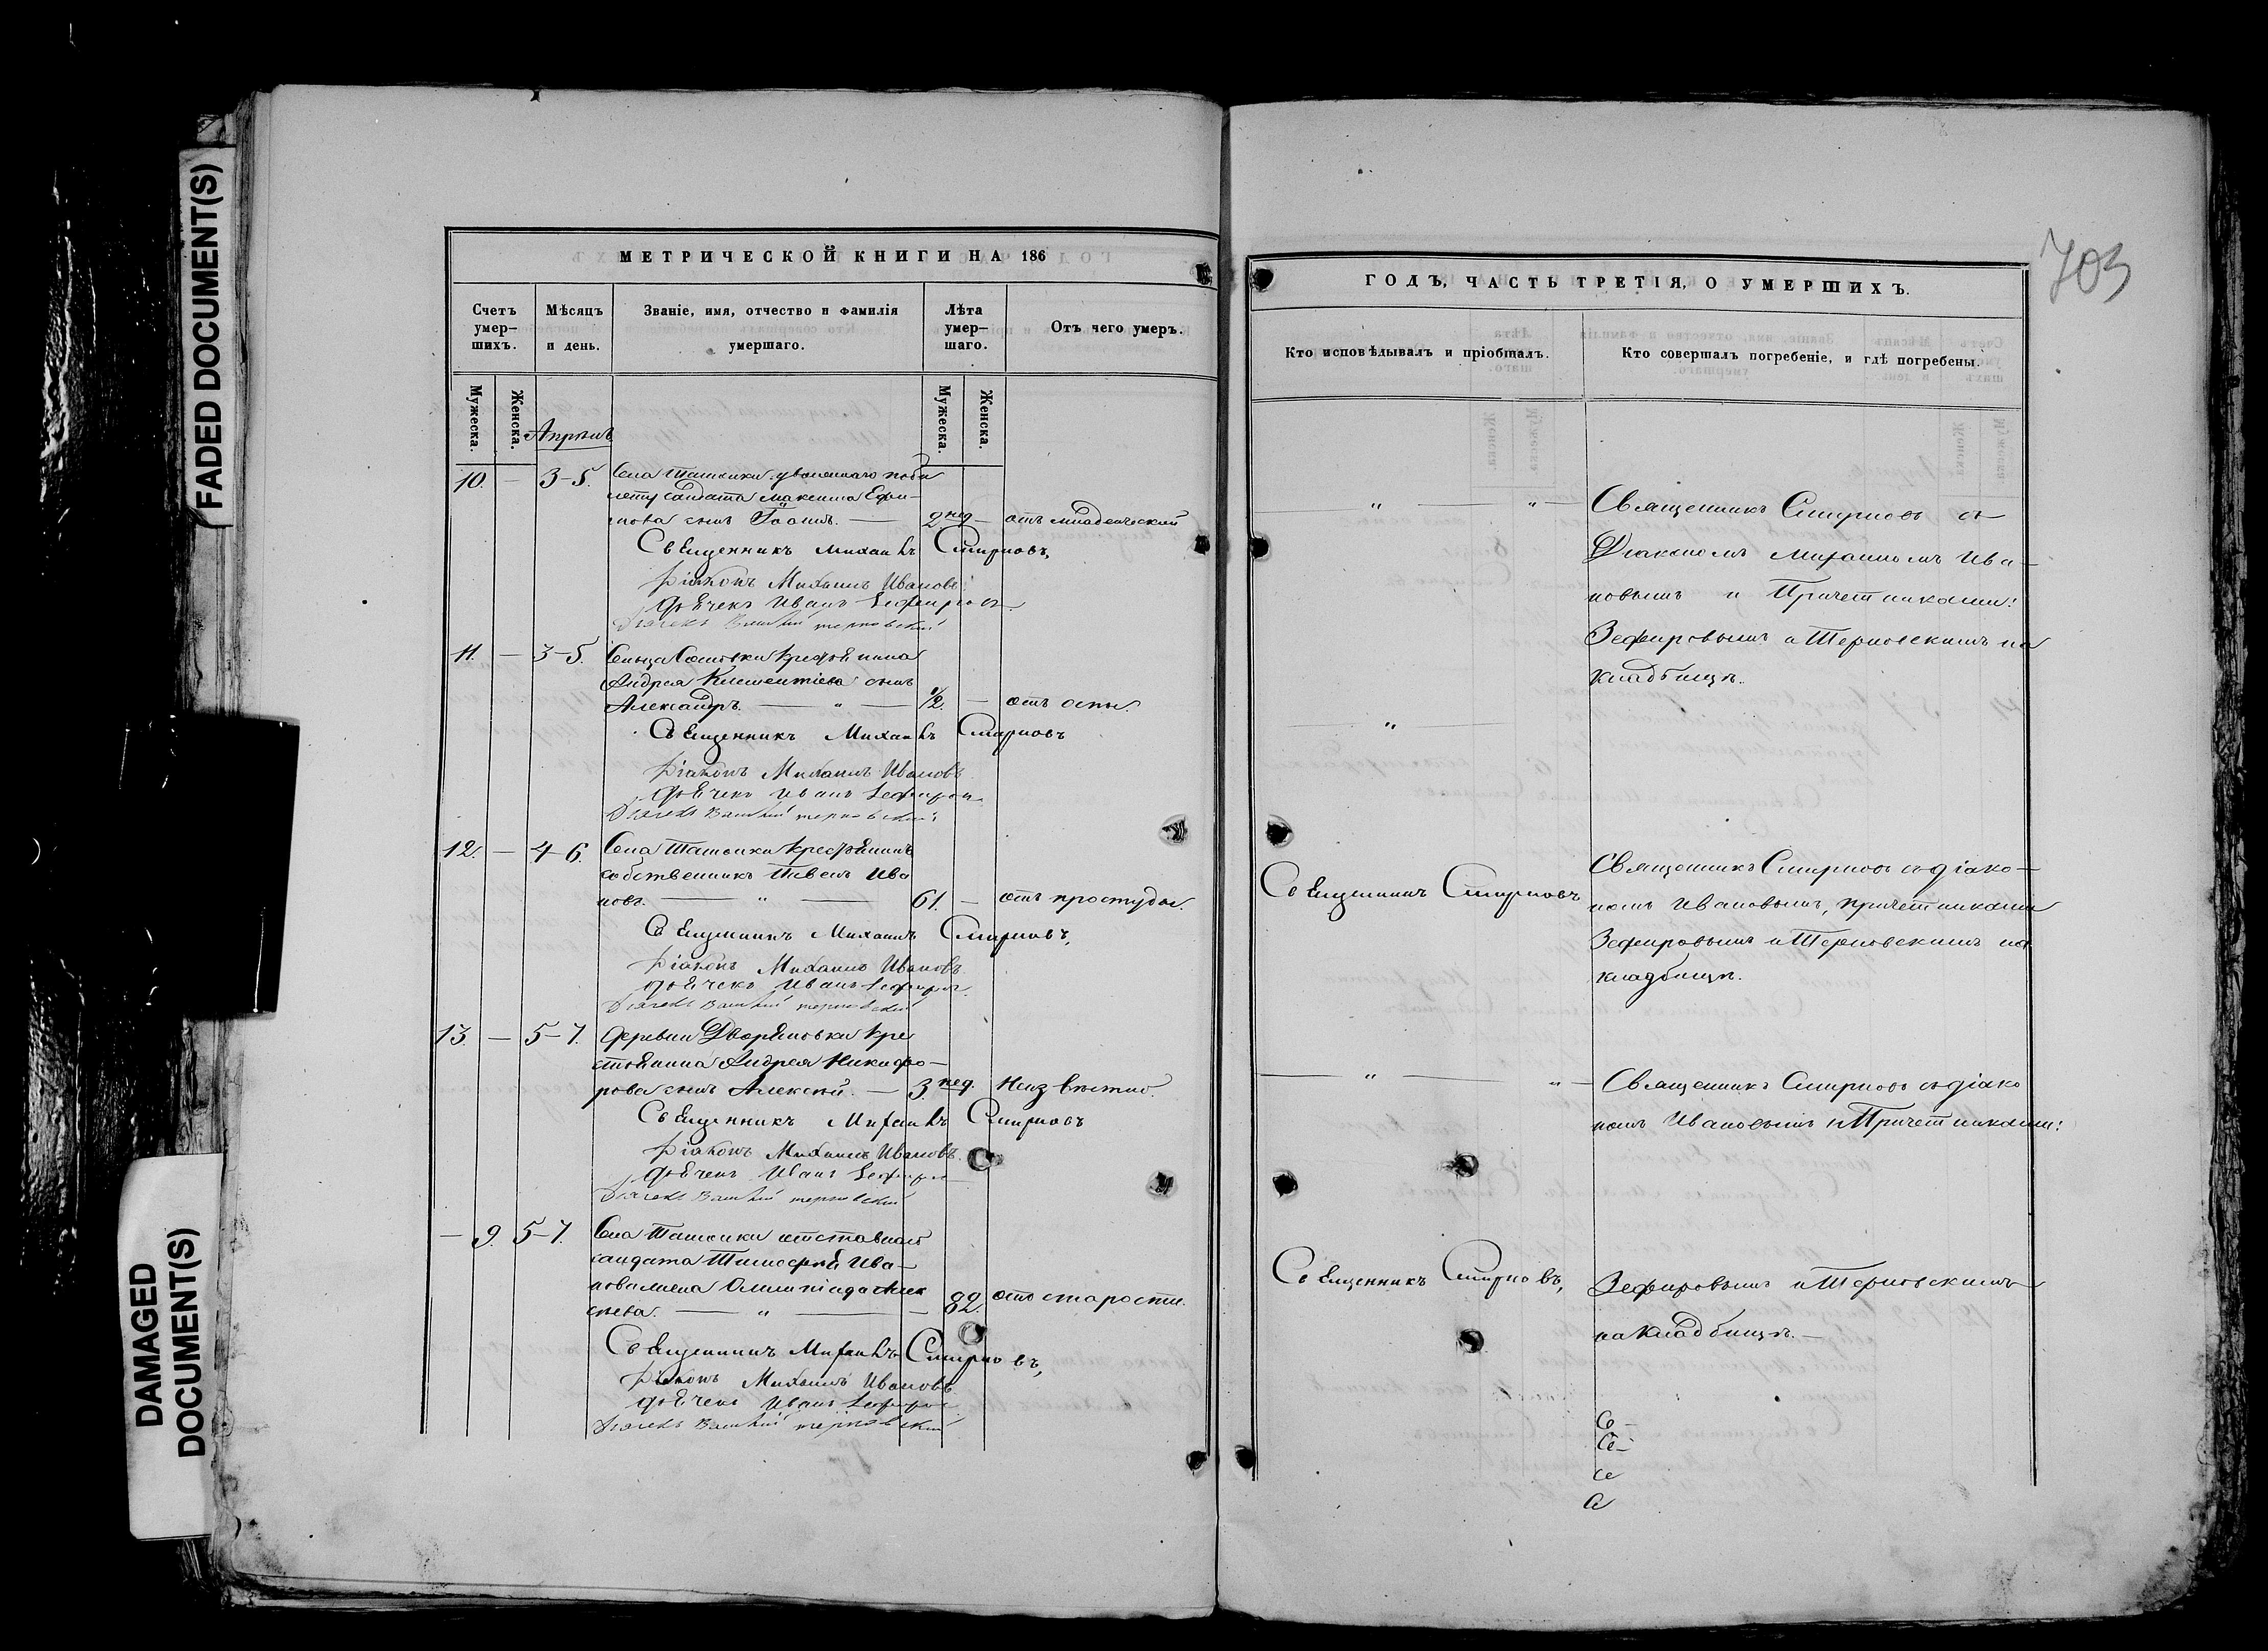 FADED DOCUMENT(S)
DAMAGED
DOCUMENT(S)
МЕТРИЧЕСКОЙ КНИГИ НА 186
Счетъ умер-шихъ.
Мѣсяцъ и день.
Званіе, имя, отчество и фамилія умершаго.
Лѣта умер-шаго.
Отъ чего умеръ.
Мужеска.
Женска.
Мужеска.
Женска.
Апрѣль
10. — 3-5. Села Ташовки уволеннаго по би
лету Солдата Максима Ефи-
мова сынъ Іоаннъ. — 2 нед — отъ младенческой
Священникъ Михаилъ Смирновъ,
Діаконъ Михаилъ Ивановъ
дьячекъ Иванъ Зефировъ
Дьячекъ Василій Терновскій
11. — 3-5. Сельца Крестьянина
Андрея Климентіева сынъ
Александръ. — " — 1/2. — отъ оспы.
Священникъ Михаилъ Смирновъ
Діаконъ Михаилъ Ивановъ
дьячекъ Иванъ Зефировъ
Дьячекъ Василій Терновскій
12. — 4-6. Села Ташовки Крестьянинъ
собственникъ Ива
новъ. — " — 61. — отъ простуды.
Священникъ Михаилъ Смирновъ,
Діаконъ Михаилъ Ивановъ
дьячекъ Иванъ Зефировъ
Дьячекъ Василій Терновскій
13. — 5-7. Деревни Дворяновки Кре
стьянина Андрея Никифо-
рова сынъ Алексѣй. — 3 нед. Неизвѣстно.
Священникъ Михаилъ Смирновъ
Діаконъ Михаилъ Ивановъ
дьячекъ Иванъ Зефировъ
Дьячекъ Василій Терновскій
— 9. 5-7. Села Ташовки отставнаго
солдата Тимофѣя Ива-
нова жена Олимпіада Алек
сѣева. — " — 82. отъ старости.
Священникъ Михаилъ Смирновъ,
Діаконъ Михаилъ Ивановъ
дьячекъ Иванъ Зефировъ
Дьячекъ Василій Терновскій
703
ГОДЪ, ЧАСТЬ ТРЕТІЯ, О УМЕРШИХЪ.
Кто исповѣдывалъ и пріобщалъ.
Кто совершалъ погребеніе, и гдѣ погребены.
— " — " — Священникъ Смирновъ съ
Діакономъ Михаиломъ Ива-
новымъ и Причетниками:
Зефировымъ и Терновскимъ на
кладбищѣ.
— " —
Священникъ Смирновъ съ діако-
Священникъ Смирновъ номъ Ивановымъ, причетниками
Зефировымъ и Терновскимъ на
кладбищѣ.
— " — " — Священникъ Смирновъ съ діако
номъ Ивановымъ и Причетниками:
Священникъ Смирновъ, Зефировымъ и Терновскимъ
на Кладбищѣ. —
Со-
Се-
се
С